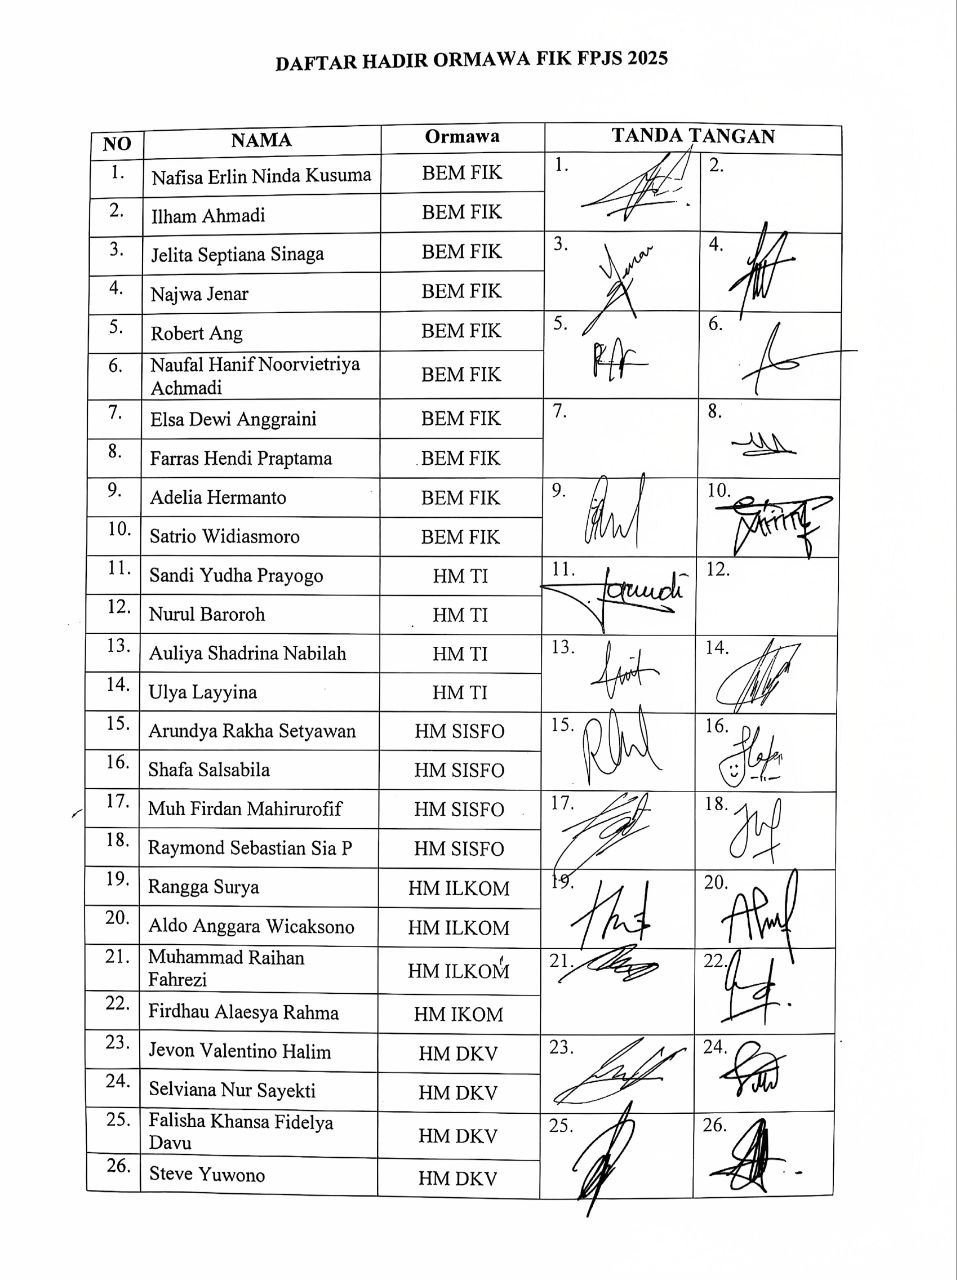 DAFTAR HADIR ORMAWA FIK FPJS 2025
NO NAMA Ormawa TANDA TANGAN
1. Nafisa Erlin Ninda Kusuma BEM FIK 1. 2.
2. Ilham Ahmadi BEM FIK
3. Jelita Septiana Sinaga BEM FIK 3. 4.
4. Najwa Jenar BEM FIK
5. Robert Ang BEM FIK 5. 6.
6. Naufal Hanif Noorvietriya
Achmadi BEM FIK
7. Elsa Dewi Anggraini BEM FIK 7. 8.
8. Farras Hendi Praptama BEM FIK
9. Adelia Hermanto BEM FIK 9. 10.
10. Satrio Widiasmoro BEM FIK
11. Sandi Yudha Prayogo HM TI 11. 12.
12. Nurul Baroroh HM TI
13. Auliya Shadrina Nabilah HM TI 13. 14.
14. Ulya Layyina HM TI
15. Arundya Rakha Setyawan HM SISFO 15. 16.
16. Shafa Salsabila HM SISFO
17. Muh Firdan Mahirurofif HM SISFO 17. 18.
18. Raymond Sebastian Sia P HM SISFO
19. Rangga Surya HM ILKOM 19. 20.
20. Aldo Anggara Wicaksono HM ILKOM
21. Muhammad Raihan
Fahrezi HM ILKOM 21. 22.
22. Firdhau Alaesya Rahma HM IKOM
23. Jevon Valentino Halim HM DKV 23. 24.
24. Selviana Nur Sayekti HM DKV
25. Falisha Khansa Fidelya
Davu HM DKV 25. 26.
26. Steve Yuwono HM DKV